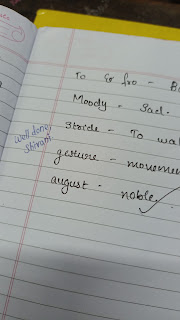 To & fro - B
Moody - Sad.
Stride - To wal
well done
Shivani
gesture - movemen
august - noble.